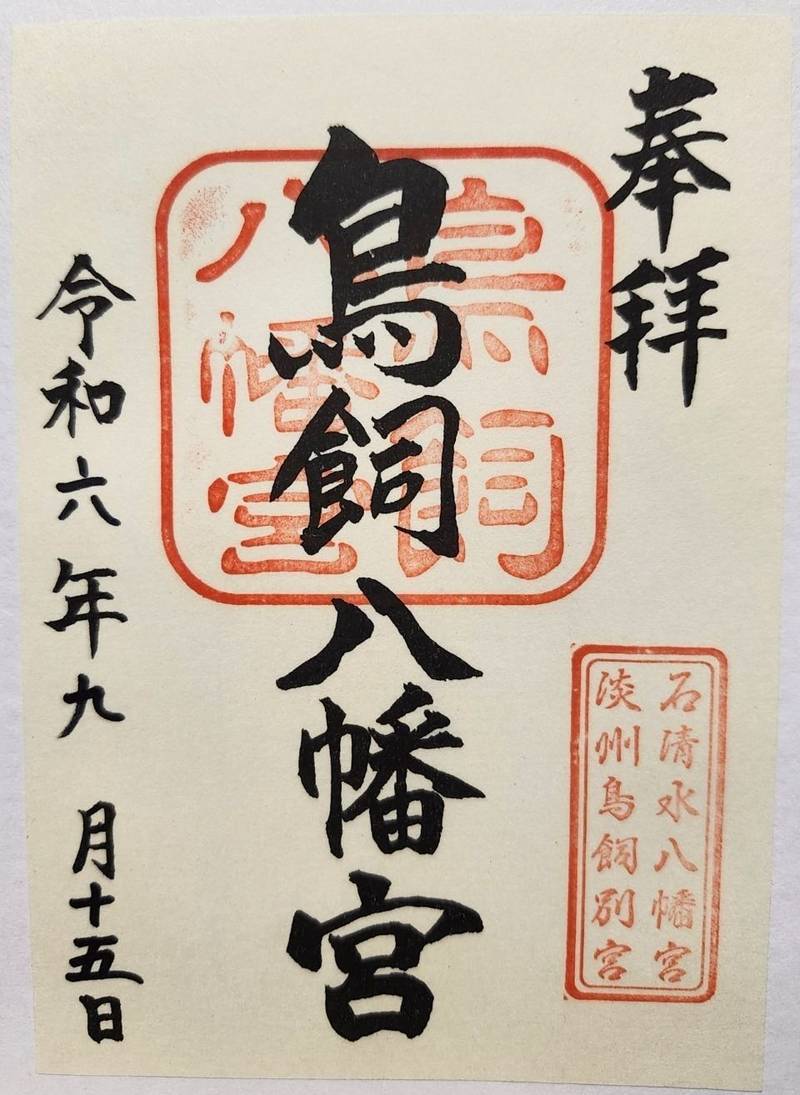 奉拝
鳥飼八幡宮
鳥飼
八幡宮
石清水八幡宮
淡州鳥飼別宮
令和六年九月十五日